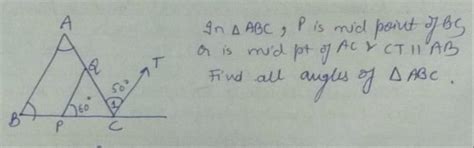 A
In △ABC, P is mid point of BC,
Q is mid pt of AC & CT || AB
Find all angles of △ABC.
Q
T
50°
1
60°
B
P
C